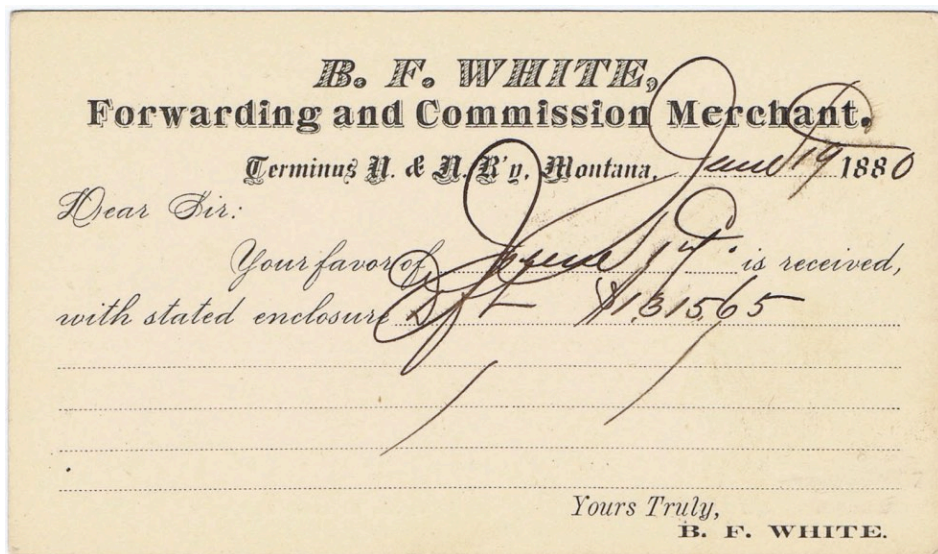 B. F. WHITE,
Forwarding and Commission Merchant.
Terminus U. & N. R'y, Montana, June 19 1880
Dear Sir:
Your favor of June 17. is received,
with stated enclosure Dft $1,315,65
Yours Truly,
B. F. WHITE.